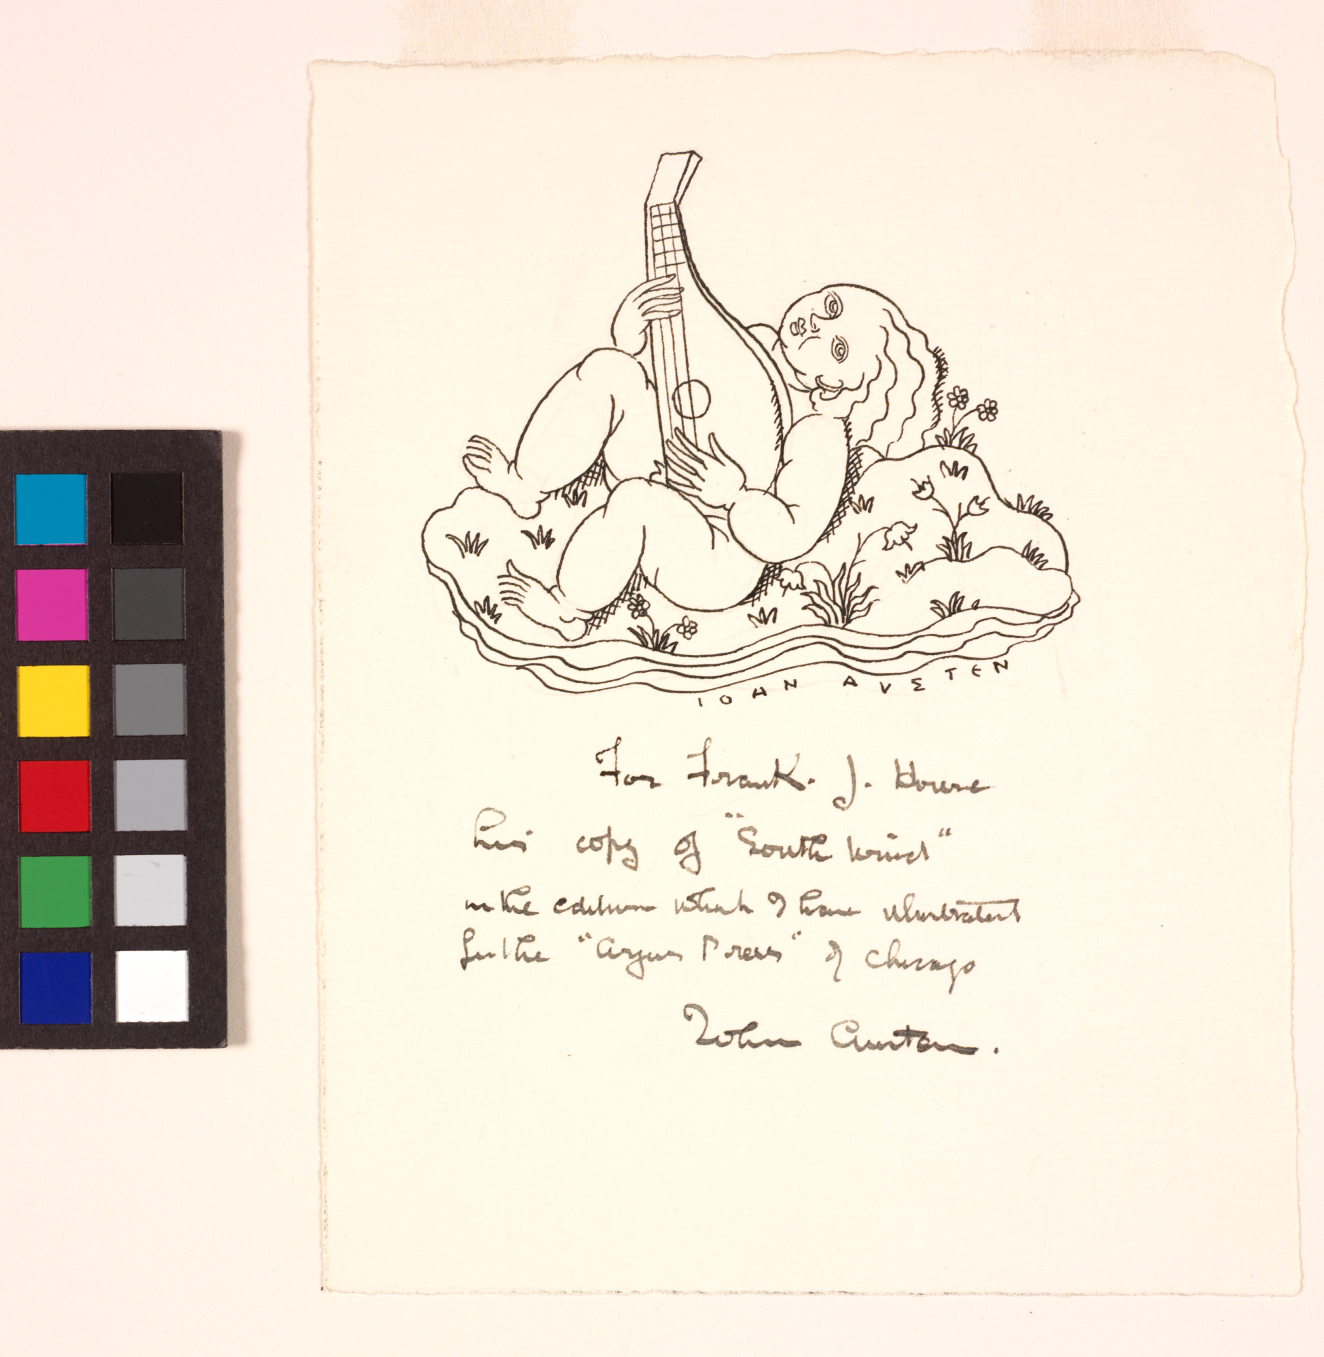 IOHN AVSTEN
For Frank. J. Howe
his copy of "South Wind"
in the edition which I have illustrated
for the "Argus Press" of Chicago
John Austen.